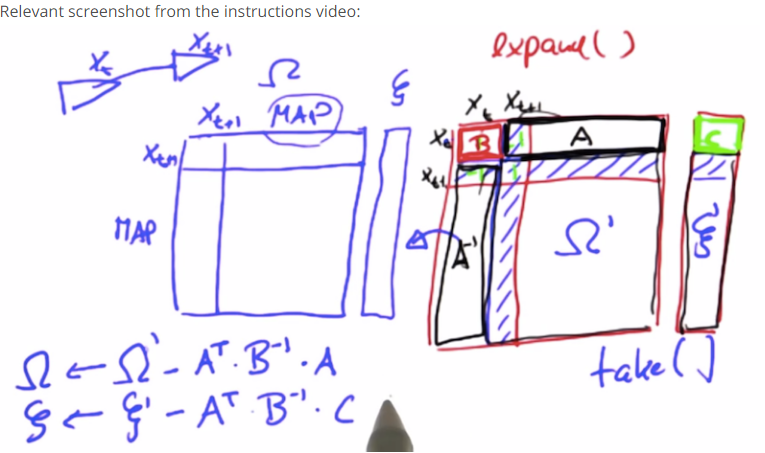 Relevant screenshot from the instructions video:
expand( )
Xₜ
Xₜ₊₁
Ω
ξ
Xₜ₊₁ MAP
Xₜ₊₁
MAP
Xₜ Xₜ₊₁
Xₜ B A C
Xₜ₊₁
A' Ω' ξ'
Ω ← Ω' - Aᵀ · B⁻¹ · A
ξ ← ξ' - Aᵀ · B⁻¹ · C
take[ ]